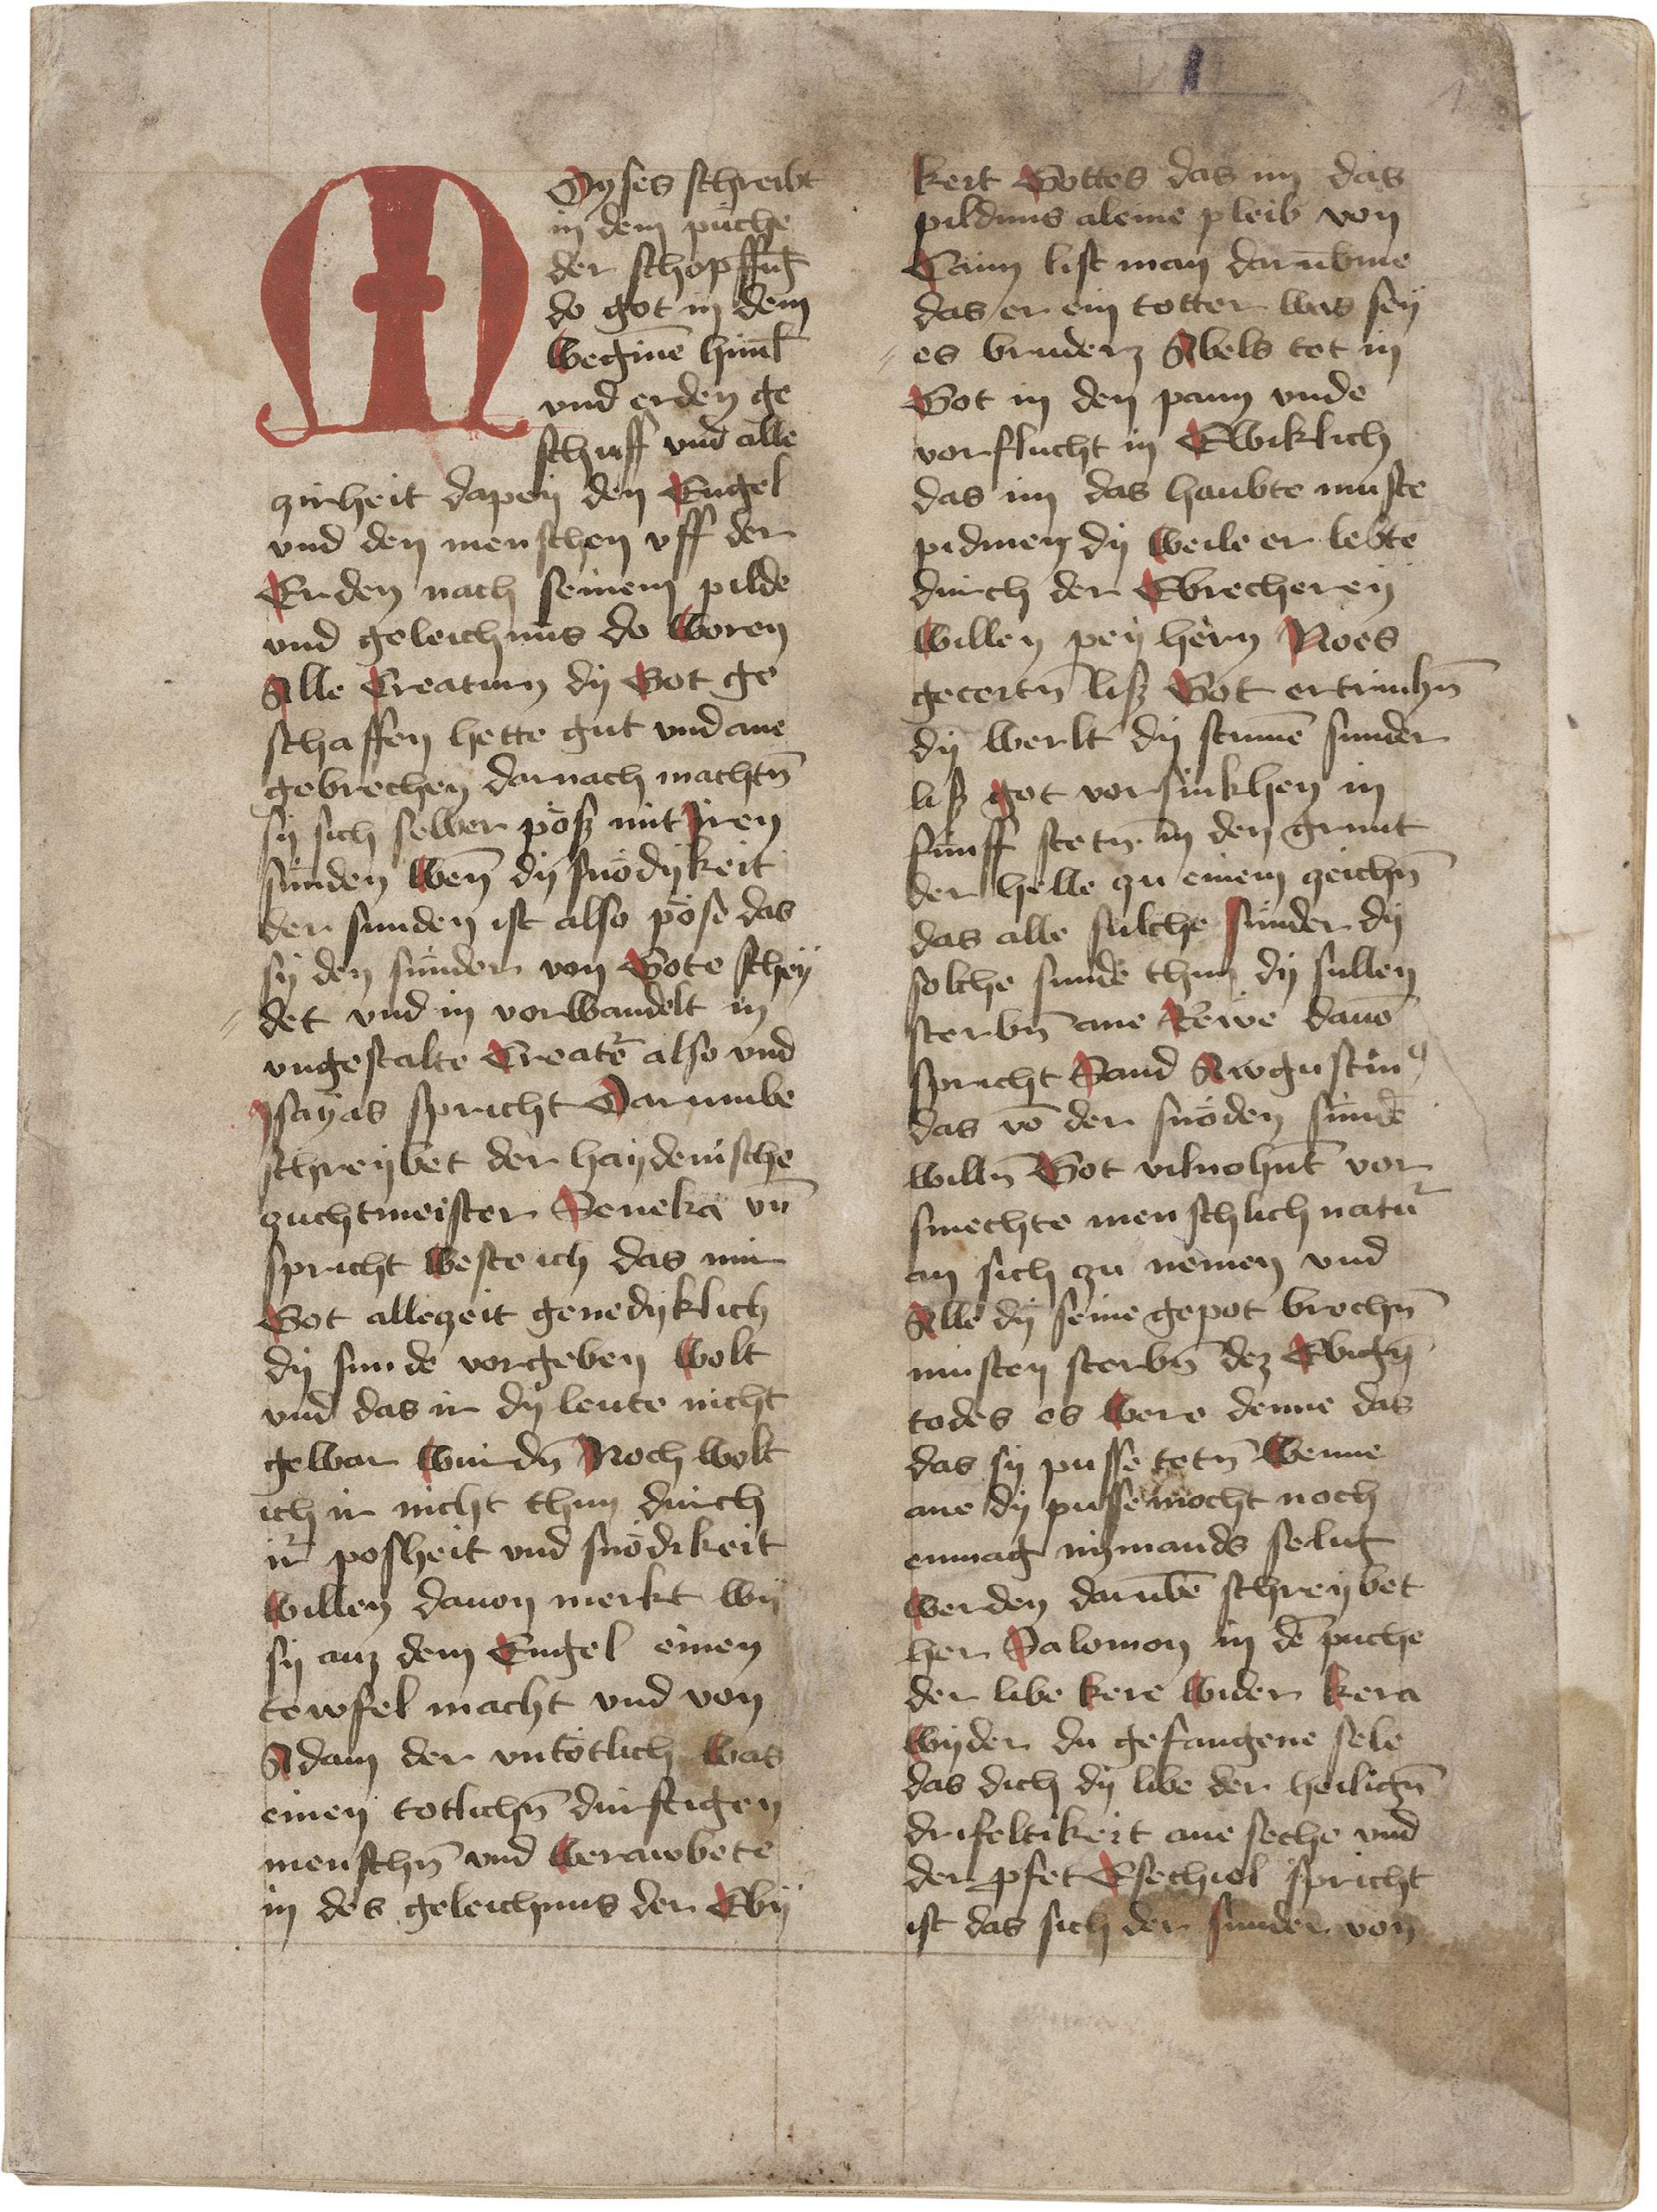 Moyses schreibt
in dem püche
der schopffūg
do got in dem
Weginē himl
vnd erden ge
schuff vnd alle
zirheit dapeij den Engel
vnd den menschen vff der
Erden nach seinem pilde
vnd geleichnus do Woren
Alle Creaturn dij Got ge
schaffen hette gut vnd ane
gebrechen darnach machtn̄
sij sich selber pösz mit Iren
sünden Wen̄ dij snödijkeit
der sunden ist also pöse das
sij den sünder von Gote scheij
det vnd in vorWandelt in
vngestalte Creatē also vnd
Isaÿas spricht Darumbe
schreijbet der haijdenische
zuchtmeister Seneka vn̄
spricht Weste ich das mir
Got allezeit genedijklich
dij sunde vorgeben Wolt
vnd das ir dij leute nicht
gewar Wurdn̄ Noch Wolt
ich ir nicht thun durch
ir posheit vnd snödikeit
Willen dauon merkt Wij
sij ausz dem Engel einen
tewfel macht vnd von
Adam der vntötlich Was
einen totlichn̄ durftigen
menschn̄ vnd Berawbete
in des geleichnus der EWij
keit Gottes das im das
pildnus aleine pleib von
Caim list man darūbme
das er ein totter Was seij
es bruderz Abels tet in
Got in den pann vnde
vorflucht in EWiklich
das im das haubte muste
pidmen dij Weile er lebte
durch der Ebrechereij
Willen peij hern Noes
geceitn̄ lisz Got ertrinkhn̄
dij Werlt dij stumē sunder
lisz got vorsinkhen in
fünff stetn̄ in den grunt
der helle zu einem zeichn̄
das alle sulche sünder dij
solche sunde thun dij sullen
sterbn̄ ane Rewe dauō
spricht Sand Awgustinꝰ
das vō der snöden sunde
willn̄ Got vilnohnt vor
smechte menschlich natur
an sich zu nemen vnd
Alle dij seine gepot brechn̄
musten sterbn̄ dez EWign̄
todes es Were denne das
das sij pusse tetn̄ Wenne
ane dij pusse mocht noch
enmag nijmands selig
Werden darūbē schreijbet
her Salomon in dē puche
der libe kere Wider kera
Wijder du gefangene sele
das dich dij libe der heilign̄
drifeltikeit ane seche vnd
der pfet Esechiel spricht
ist das sich der sunder von